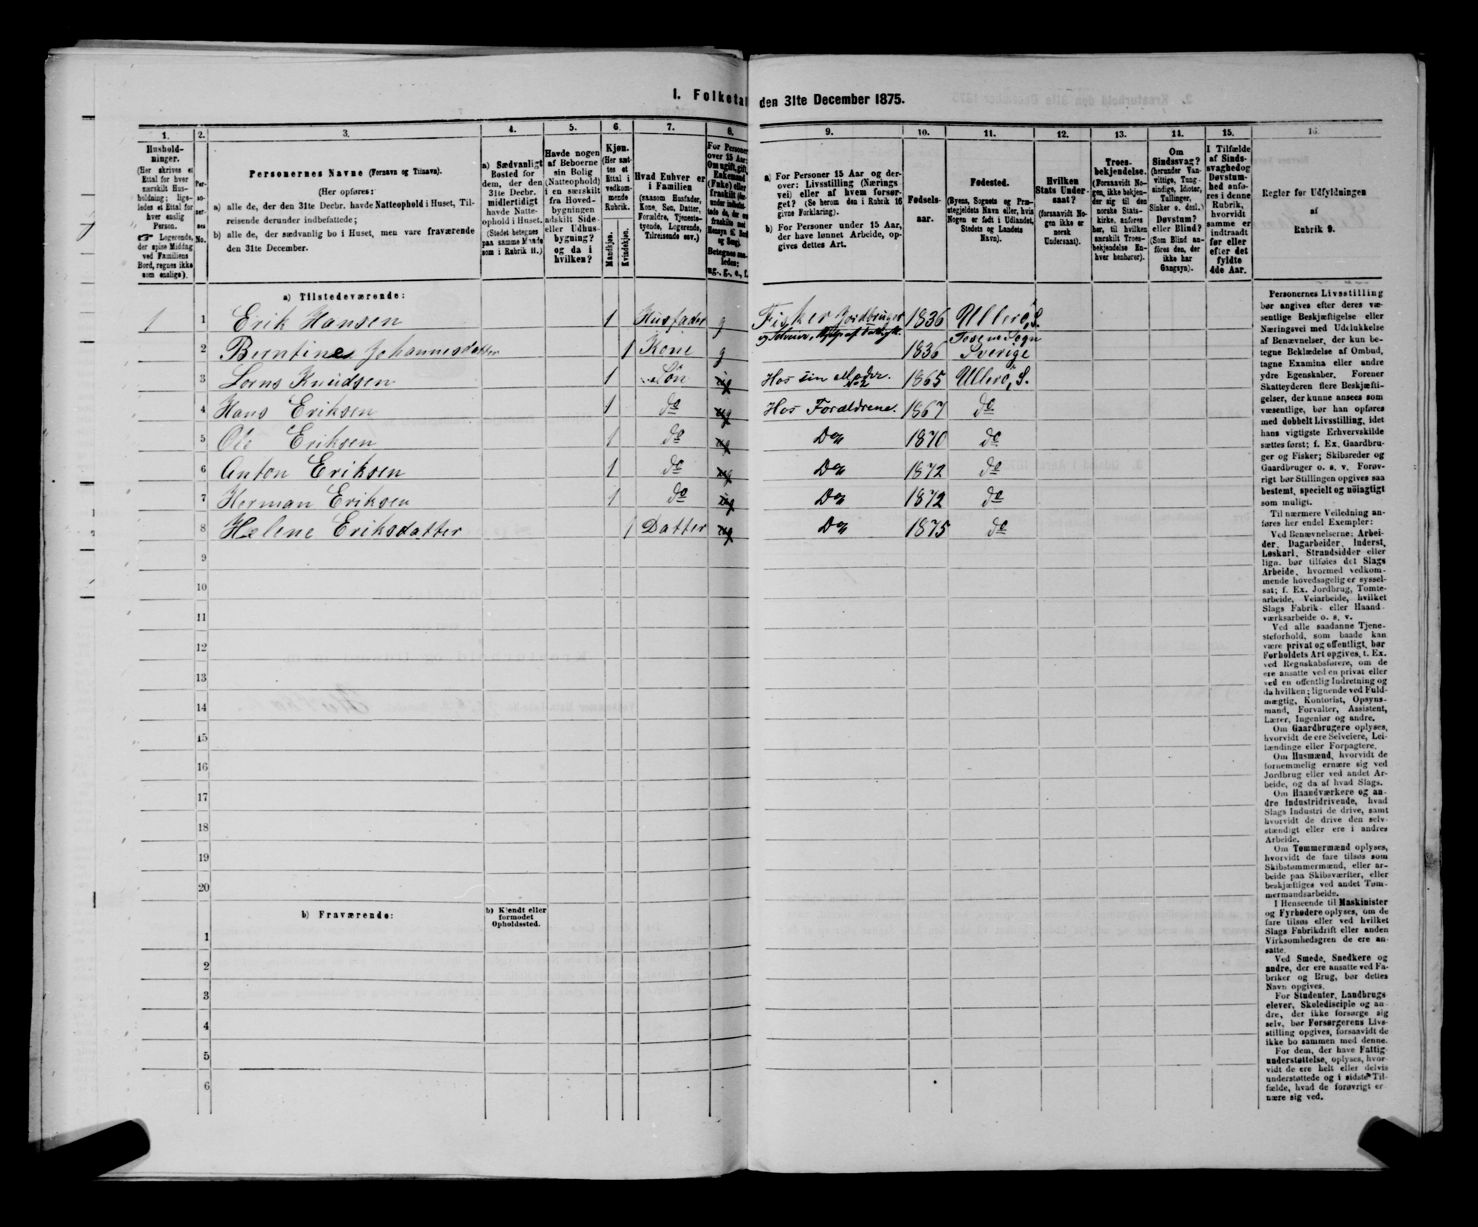 I. Folketæl
den 31te December 1875.
1.
Hushold-
ninger.
(Her skrives et
Ettal for hver
særskilt Hus-
holdning; lige-
ledes et Ettal for
hver enslig
Person.
Logerende,
der spise Middag
ved Familiens
Bord, regnes ikke
som enslige).
2.
Per-
so-
ner-
nes
No.
3.
Personernes Navne (Fornavn og Tilnavn).
(Her opføres:
a) alle de, der den 31te Decbr. havde Natteophold i Huset, Til-
reisende derunder indbefattede;
b) alle de, der sædvanlig bo i Huset, men vare fraværende
den 31te December.
4.
a) Sædvanligt
Bosted for
dem, der den
31te Decbr.
midlertidigt
havde Natte-
ophold i Huset.
(Stedet betegnes
paa samme Maade
som i Rubrik 11.)
5.
Havde nogen
af Beboerne
sin Bolig
(Natteophold)
i en særskilt
fra Hoved-
bygningen
adskilt Side-
eller Udhus-
bygning?
og da i
hvilken?
6.
Kjøn.
(Her sæt-
tes et
Ettal i
vedkom-
mende
Rubrik.
Mandkjøn.
Kvindekjøn.
7.
Hvad Enhver er
i Familien
(saasom Husfader,
Kone, Søn, Datter,
Forældre, Tjeneste-
tyende, Logerende,
Tilreisende osv.)
8.
For Personer
over 15 Aar:
Om ugift, gift,
Enkemand
(Enke) eller
fraskilt
ug., g., e., f.
9.
a) For Personer 15 Aar og der-
over: Livsstilling (Nærings
vei) eller af hvem forsør-
get? (Se herom den i Rubrik 16
givne Forklaring).
b) For Personer under 15 Aar,
der have lønnet Arbeide, op-
gives dettes Art.
10.
Fødsels-
aar.
11.
Fødested.
(Byens, Sognets og Præ-
stegjeldets Navn eller, hvis
Nogen er født i Udlandet,
Stedets og Landets
Navn).
12.
Hvilken
Stats Under-
saat?
(forsaavidt No-
gen ikke er
norsk
Undersaat).
13.
Troes-
bekjendelse.
(Forsaavidt No-
gen, ikke bekjen-
der sig til den
norske Stats-
kirke, anføres
her, til hvilken
særskilt Troes-
bekjendelse En-
hver henhører).
14.
Om
Sindssvag?
(herunder Van-
vittige, Tung-
sindige, Idioter,
Tullinger,
Sinker o. desl.)
Døvstum?
eller Blind?
(Som Blind an-
føres den, der
ikke har
Gangsyn).
15.
I Tilfælde
af Sinds-
svaghed og
Døvstum-
hed anfø-
res i denne
Rubrik,
hvorvidt
samme er
indtraadt
før eller
efter det
fyldte
4de Aar.
16.
Regler for Udfyldningen
af
Rubrik 9.
a) Tilstedeværende:
1 1 Erik Hansen 1 Husfader g Fisker Jordbruger 1836 Ullerö, S.
2 Berntine Johannesdatter 1 Kone g 1836 Tosene Sogn Sverige
3 Lorns Knudsen 1 Søn ug Hos sin Moder. No 2 1865 Ullerö, S.
4 Hans Eriksen 1 do ug Hos Forældrene. 1867 do
5 Ole Eriksen 1 do ug Do 1870 do
6 Anton Eriksen 1 do ug Do 1872 do
7 Herman Eriksen 1 do ug Do 1872 do
8 Helene Eriksdatter 1 Datter ug Do 1875 do
9
10
11
12
13
14
15
16
17
18
19
20
b) Fraværende:
b) Kjendt eller
formodet
Opholdssted.
1
2
3
4
5
6
Personernes Livsstilling
bør angives efter deres væ-
sentlige Beskjæftigelse eller
Næringsvei med Udelukkelse
af Benævnelser, der kun be-
tegne Beklædelse af Ombud,
tagne Examina eller andre
ydre Egenskaber. Forener
Skatteyderen flere Beskjæfti-
gelser, der kunne ansees som
væsentlige, bør han opføres
med dobbelt Livsstilling, idet
hans vigtigste Erhvervskilde
sættes først; f. Ex. Gaardbru-
ger og Fisker; Skibsreder og
Gaardbruger o. s. v. Forøv-
rigt bør Stillingen opgives saa
bestemt, specielt og nöiagtigt
som muligt.
Til nærmere Veiledning an-
føres her endel Exempler:
Ved Benævnelserne: Arbei-
der, Dagarbeider, Inderst,
Løskarl, Strandsidder eller
lign. bør tilføies det Slags
Arbeide, hvormed vedkom-
mende hovedsagelig er syssel-
sat; f. Ex. Jordbrug, Tomte-
arbeide, Veiarbeide, hvilket
Slags Fabrik- eller Haand-
værksarbeide o. s. v.
Ved alle saadanne Tjene-
steforhold, som baade kan
være privat og offentligt, bør
Forholdets Art opgives, t. Ex.
ved Regnskabsførere, om de
ere ansatte ved en privat eller
ved en offentlig Indretning og
da hvilken; lignende ved Fuld-
mægtig, Kontorist, Opsyns-
mand, Forvalter, Assistent,
Lærer, Ingeniør og andre.
Om Gaardbrugere oplyses,
hvorvidt de ere Selveiere, Lei-
lændinge eller Forpagtere.
Om Husmænd, hvorvidt de
fornemmelig ernære sig ved
Jordbrug eller ved andet Ar-
beide, og da af hvad Slags.
Om Haandværkere og an-
dre Industridrivende, hvad
Slags Industri de drive, samt
hvorvidt de drive den selv-
stændigt eller ere i andres
Arbeide.
Om Tømmermænd oplyses,
hvorvidt de fare tilsøs som
Skibstømmermænd, eller ar-
beide paa Skibsværfter, eller
beskjæftiges ved andet Tøm-
mermandsarbeide.
I Henseende til Maskinister
og Fyrbødere oplyses, om de
fare tilsøs eller ved hvilket
Slags Fabrikdrift eller anden
Virksomhedsgren de ere an-
satte.
Ved Smede, Snedkere og
andre, der ere ansatte ved Fa-
briker og Brug, bør dettes
Navn opgives.
For Studenter, Landbrugs
elever, Skoledisciple og an-
dre, der ikke forsørge sig
selv, bør Forsørgerens Livs-
stilling opgives, forsaavidt de
ikke bo sammen med denne.
For dem, der have Fattig-
understøttelse, oplyses, hvor-
vidt de ere helt eller delvis
understøttede og i sidste Til-
fælde, hvad de forøvrigt er-
nære sig ved.